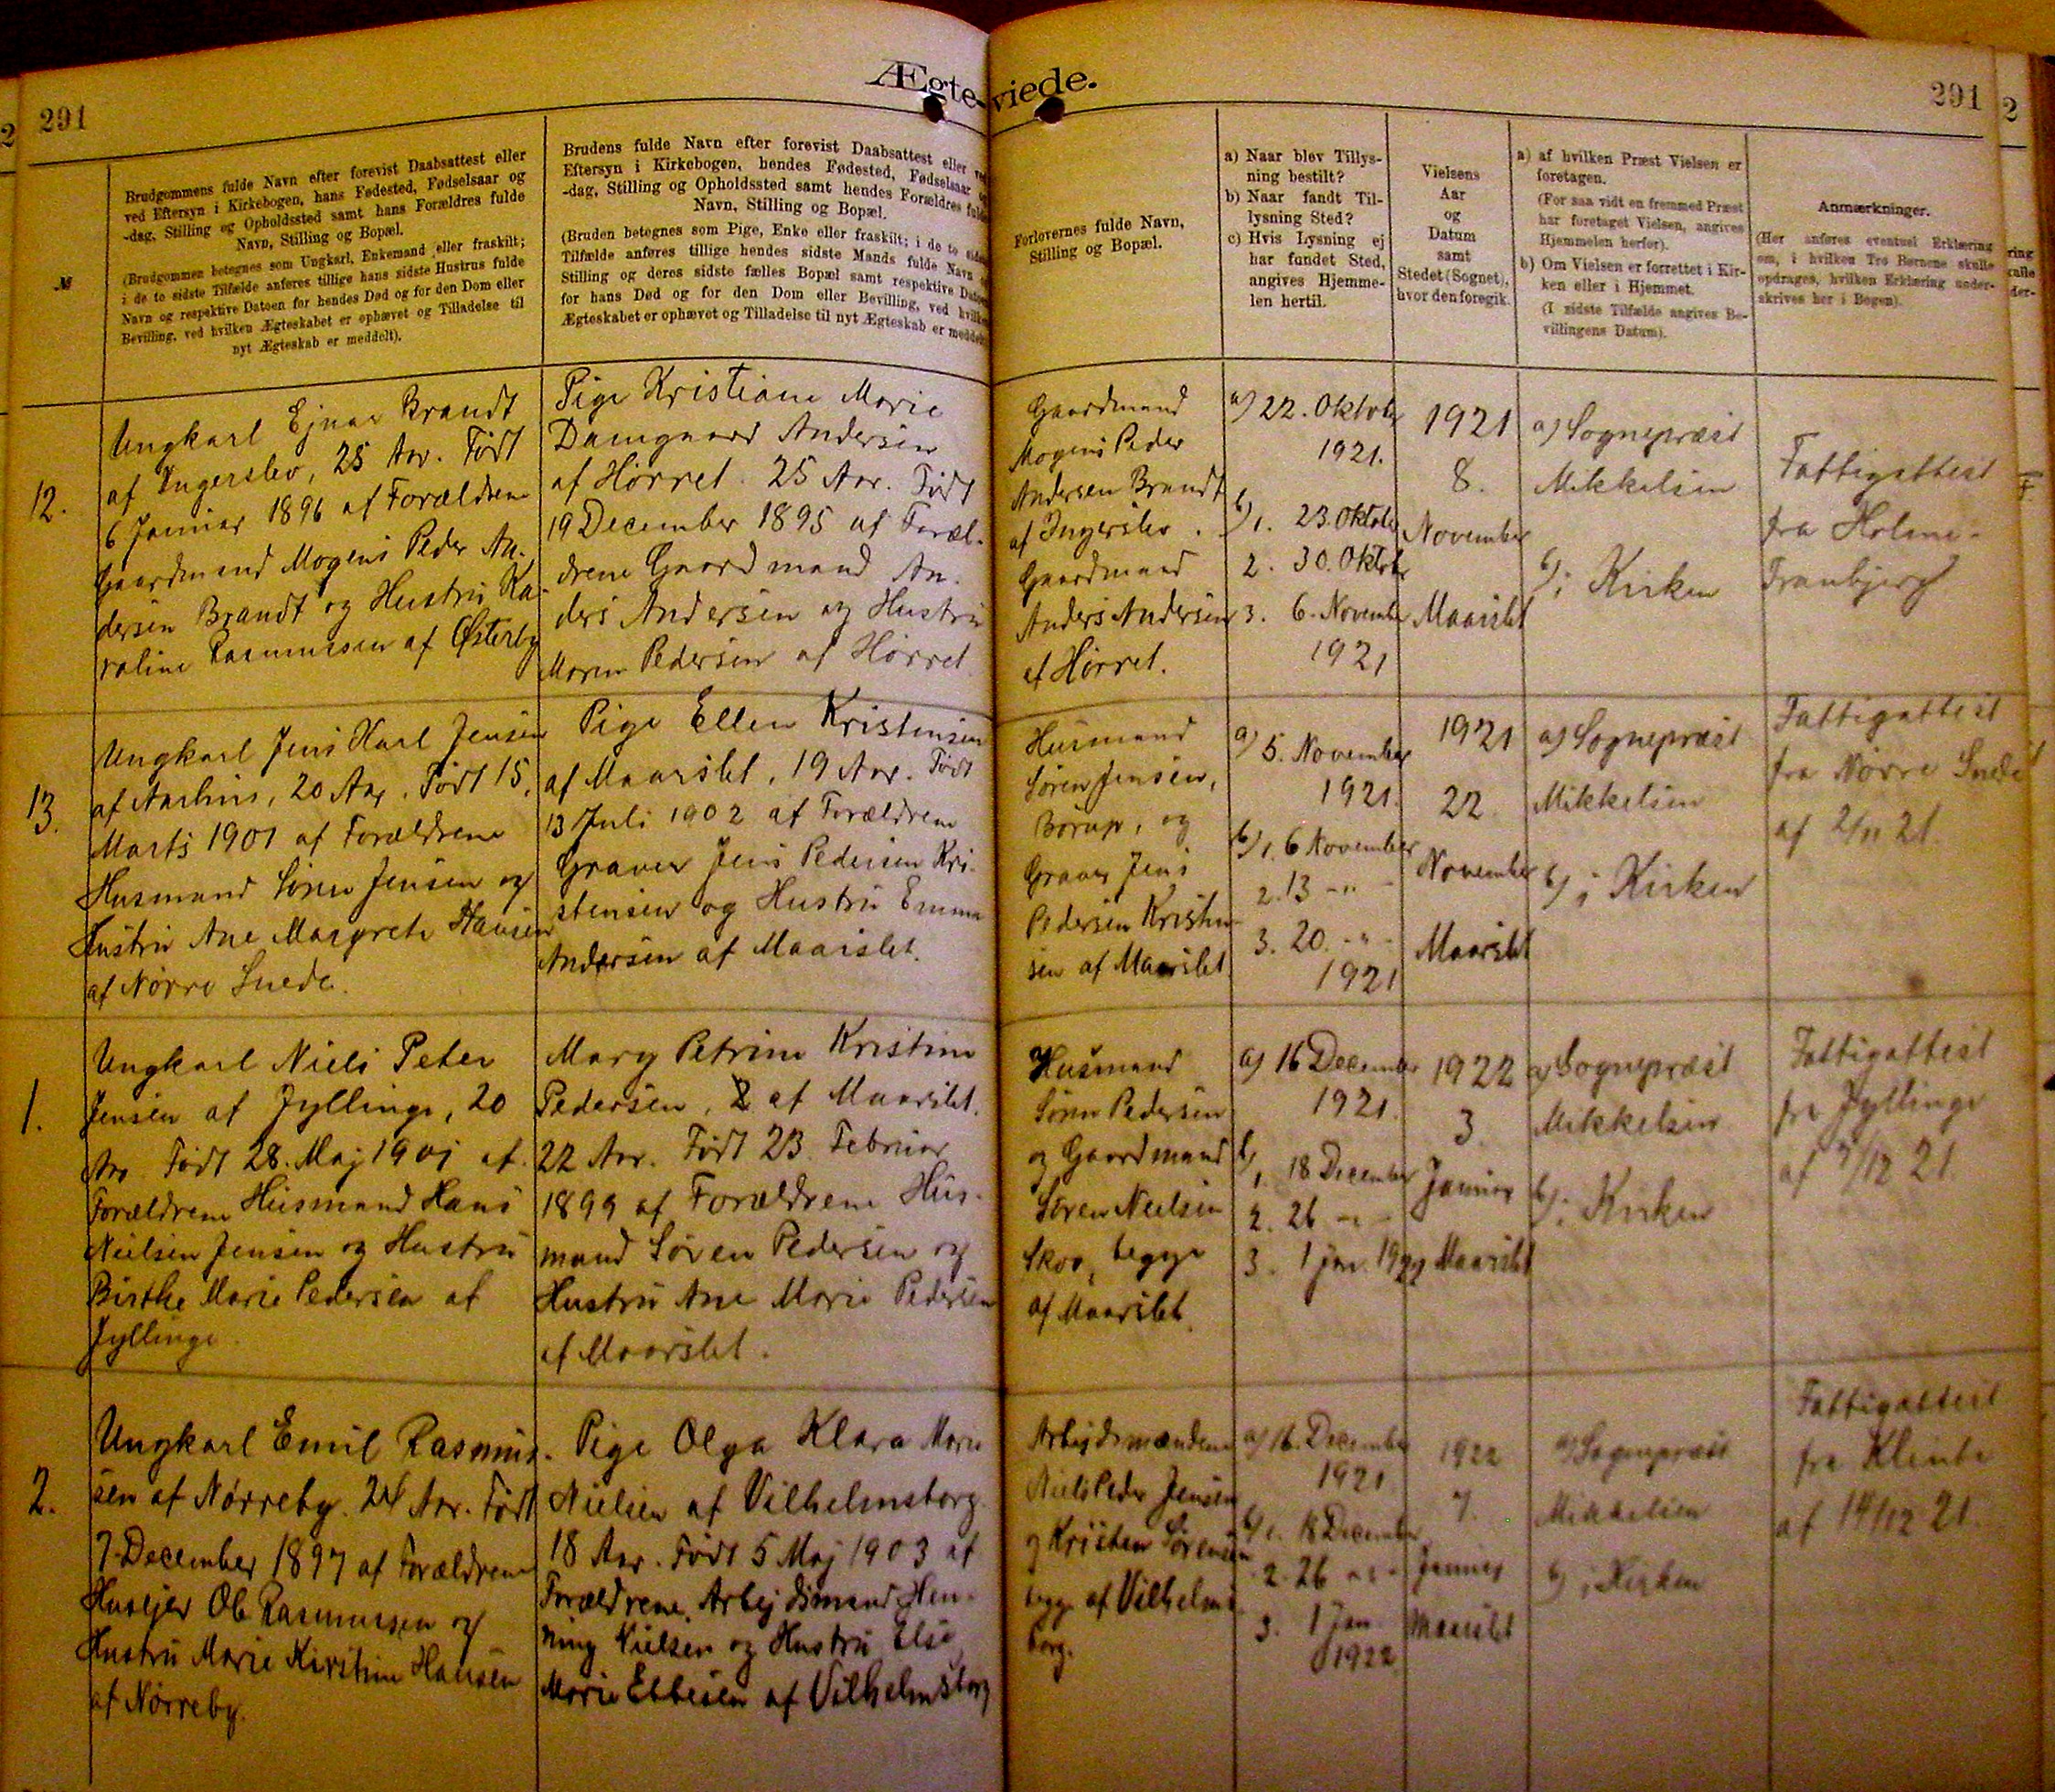 Ægte-viede.
291
291
2
2
№
Brudgommens fulde Navn efter forevist Daabsattest eller
ved Eftersyn i Kirkebogen, hans Fødested, Fødselsaar og
-dag, Stilling og Opholdssted samt hans Forældres fulde
Navn, Stilling og Bopæl.
(Brudgommen betegnes som Ungkarl, Enkemand eller fraskilt;
i de to sidste Tilfælde anføres tillige hans sidste Hustrus fulde
Navn og respektive Datoen for hendes Død og for den Dom eller
Bevilling, ved hvilken Ægteskabet er ophævet og Tilladelse til
nyt Ægteskab er meddelt).
Brudens fulde Navn efter forevist Daabsattest eller ved
Eftersyn i Kirkebogen, hendes Fødested, Fødselsaar og
-dag, Stilling og Opholdssted samt hendes Forældres fulde
Navn, Stilling og Bopæl.
(Bruden betegnes som Pige, Enke eller fraskilt; i de to sidste
Tilfælde anføres tillige hendes sidste Mands fulde Navn og
Stilling og deres sidste fælles Bopæl samt respektive Datoen
for hans Død og for den Dom eller Bevilling, ved hvilken
Ægteskabet er ophævet og Tilladelse til nyt Ægteskab er meddelt)
Forlovernes fulde Navn,
Stilling og Bopæl.
a) Naar blev Tillys-
ning bestilt?
b) Naar fandt Til-
lysning Sted?
c) Hvis Lysning ej
har fundet Sted,
angives Hjemme-
len hertil.
Vielsens
Aar
og
Datum
samt
Stedet (Sognet),
hvor den foregik.
a) af hvilken Præst Vielsen er
foretagen.
(For saa vidt en fremmed Præst
har foretaget Vielsen, angives
Hjemmelen herfor).
b) Om Vielsen er forrettet i Kir-
ken eller i Hjemmet.
(I sidste Tilfælde angives Be-
villingens Datum).
Anmærkninger.
(Her anføres eventuel Erklæring
om, i hvilken Tro Børnene skulle
opdrages, hvilken Erklæring under-
skrives her i Bogen).
12.
Ungkarl Ejnar Brandt
af Ingerslev, 25 Aar. Født
6 Januar 1896 af Forældrene
Gaardmand Mogens Peder An-
dersen Brandt og Hustru Ka-
roline Rasmussen af Østerby
Pige Kristiane Marie
Damgaard Andersen
af Hørret. 25 Aar. Født
19 December 1895 af Foræl-
drene Gaardmand An-
ders Andersen og Hustru
Maren Pedersen af Hørret
Gaardmand
Mogens Peder
Andersen Brandt
af Ingerslev.
Gaardmand
Anders Andersen
af Hørret.
a) 22. Oktober
1921.
b) 1. 23. Oktober
2. 30. Oktober
3. 6. November
1921
1921
8.
November
Maarslet
a) Sognepræst
Mikkelsen
b) i Kirken
Fattigattest
fra Holme-
Tranbjerg
13.
Ungkarl Jens Karl Jensen
af Aarhus, 20 Aar. Født 15.
Marts 1901 af Forældrene
Husmand Søren Jensen og
Hustru Ane Margrete Hansen
af Nørre Snede.
Pige Ellen Kristensen
af Maarslet, 19 Aar. Født
13 Juli 1902 af Forældrene
Graver Jens Pedersen Kri-
stensen og Hustru Emma
Andersen af Maarslet.
Husmand
Søren Jensen,
Børup, og
Graver Jens
Pedersen Kristen-
sen af Maarslet
a) 5. November
1921.
b) 1. 6 November
2. 13 -"-
3. 20. -"-
1921
1921
22
November
Maarslet
a) Sognepræst
Mikkelsen
b) i Kirken
Fattigattest
fra Nørre Snede
af 2/11 21.
1.
Ungkarl Niels Peter
Jensen af Jyllinge, 20
Aar. Født 28. Maj 1901 af
Forældrene Husmand Hans
Nielsen Jensen og Hustru
Birthe Marie Pedersen af
Jyllinge.
Mary Petrine Kristine
Pedersen, af Maarslet.
22 Aar. Født 23. Februar
1899 af Forældrene Hus-
mand Søren Pedersen og
Hustru Ane Marie Pedersen
af Maarslet.
Husmand
Søren Pedersen
og Gaardmand
Søren Neilsen
Skov, begge
af Maarslet.
a) 16 December
1921.
b) 1. 18 December
2. 26 -"-
3. 1 Jan. 1922
1922
3.
Januar
Maarslet
a) Sognepræst
Mikkelsen
b) i Kirken
Fattigattest
fra Jyllinge
af 7/12 21.
2.
Ungkarl Emil Rasmus-
sen af Nørreby. 24 Aar. Født
7. December 1897 af Forældrene
Husejer Ole Rasmussen og
Hustru Marie Kirstine Hansen
af Nørreby.
Pige Olga Klara Marie
Nielsen af Vilhelmsborg.
18 Aar. Født 5 Maj 1903 af
Forældrene, Arbejdsmand Hen-
ning Nielsen og Hustru Else
Marie Ebbesen af Vilhelmsborg
Arbejdsmændene
Niels Peder Jensen
og Kristen Sørensen
begge af Vilhelms-
borg.
a) 16. December
1921
b) 1. 18 December
2. 26 -"-
3. 1 Jan
1922
1922
7.
Januar
Maarslet
a) Sognepræst
Mikkelsen
b) i Kirken
Fattigattest
fra Klinte
af 14/12 21.